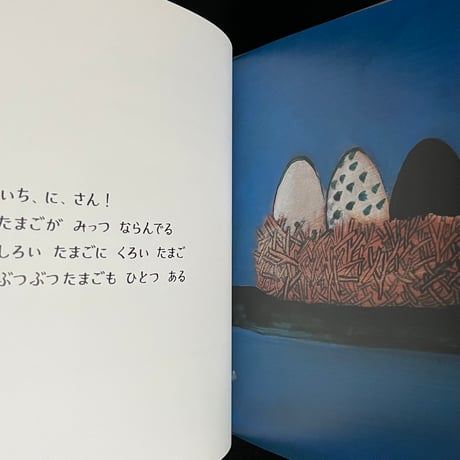 いち、に、さん！
たまごが みっつ ならんでる
しろい たまごに くろい たまご
ぶつぶつたまごも ひとつ ある